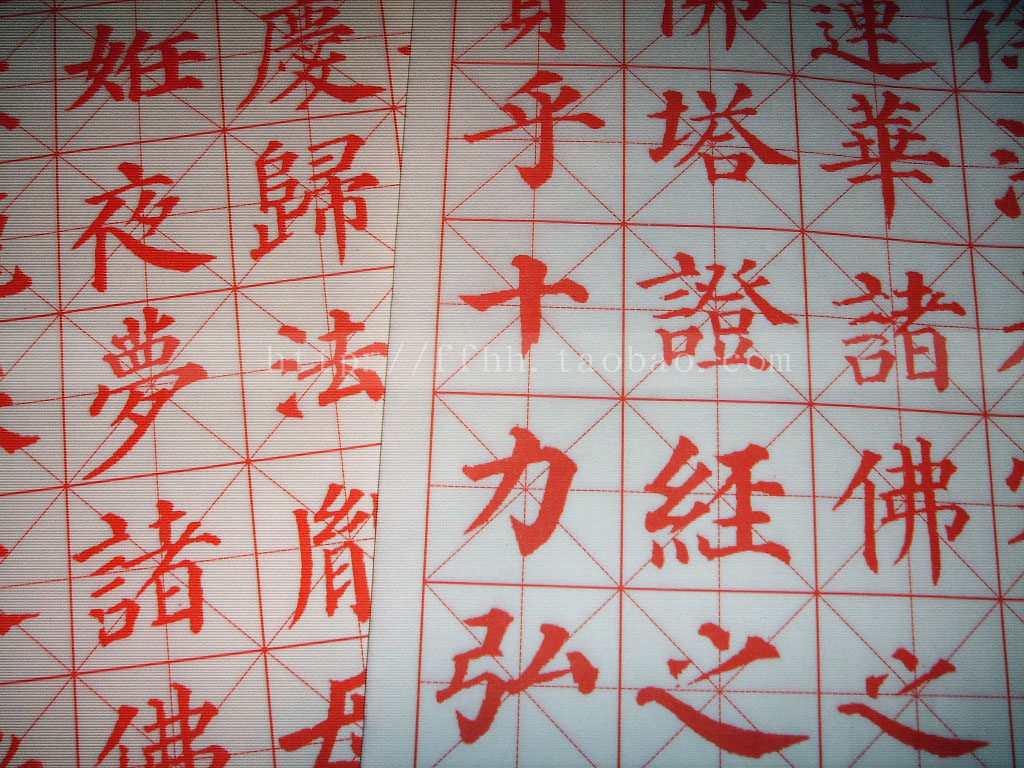 蓮華諸佛之
佛塔證經之
乎十力弘
慶歸法胤母
姙夜夢諸佛
http://ffhh.taobao.com